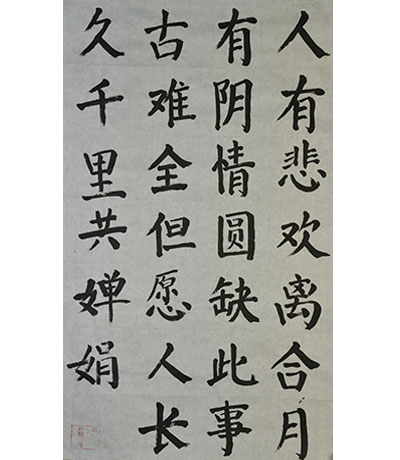 人有悲欢离合月
有阴情圆缺此事
古难全但愿人长
久千里共婵娟